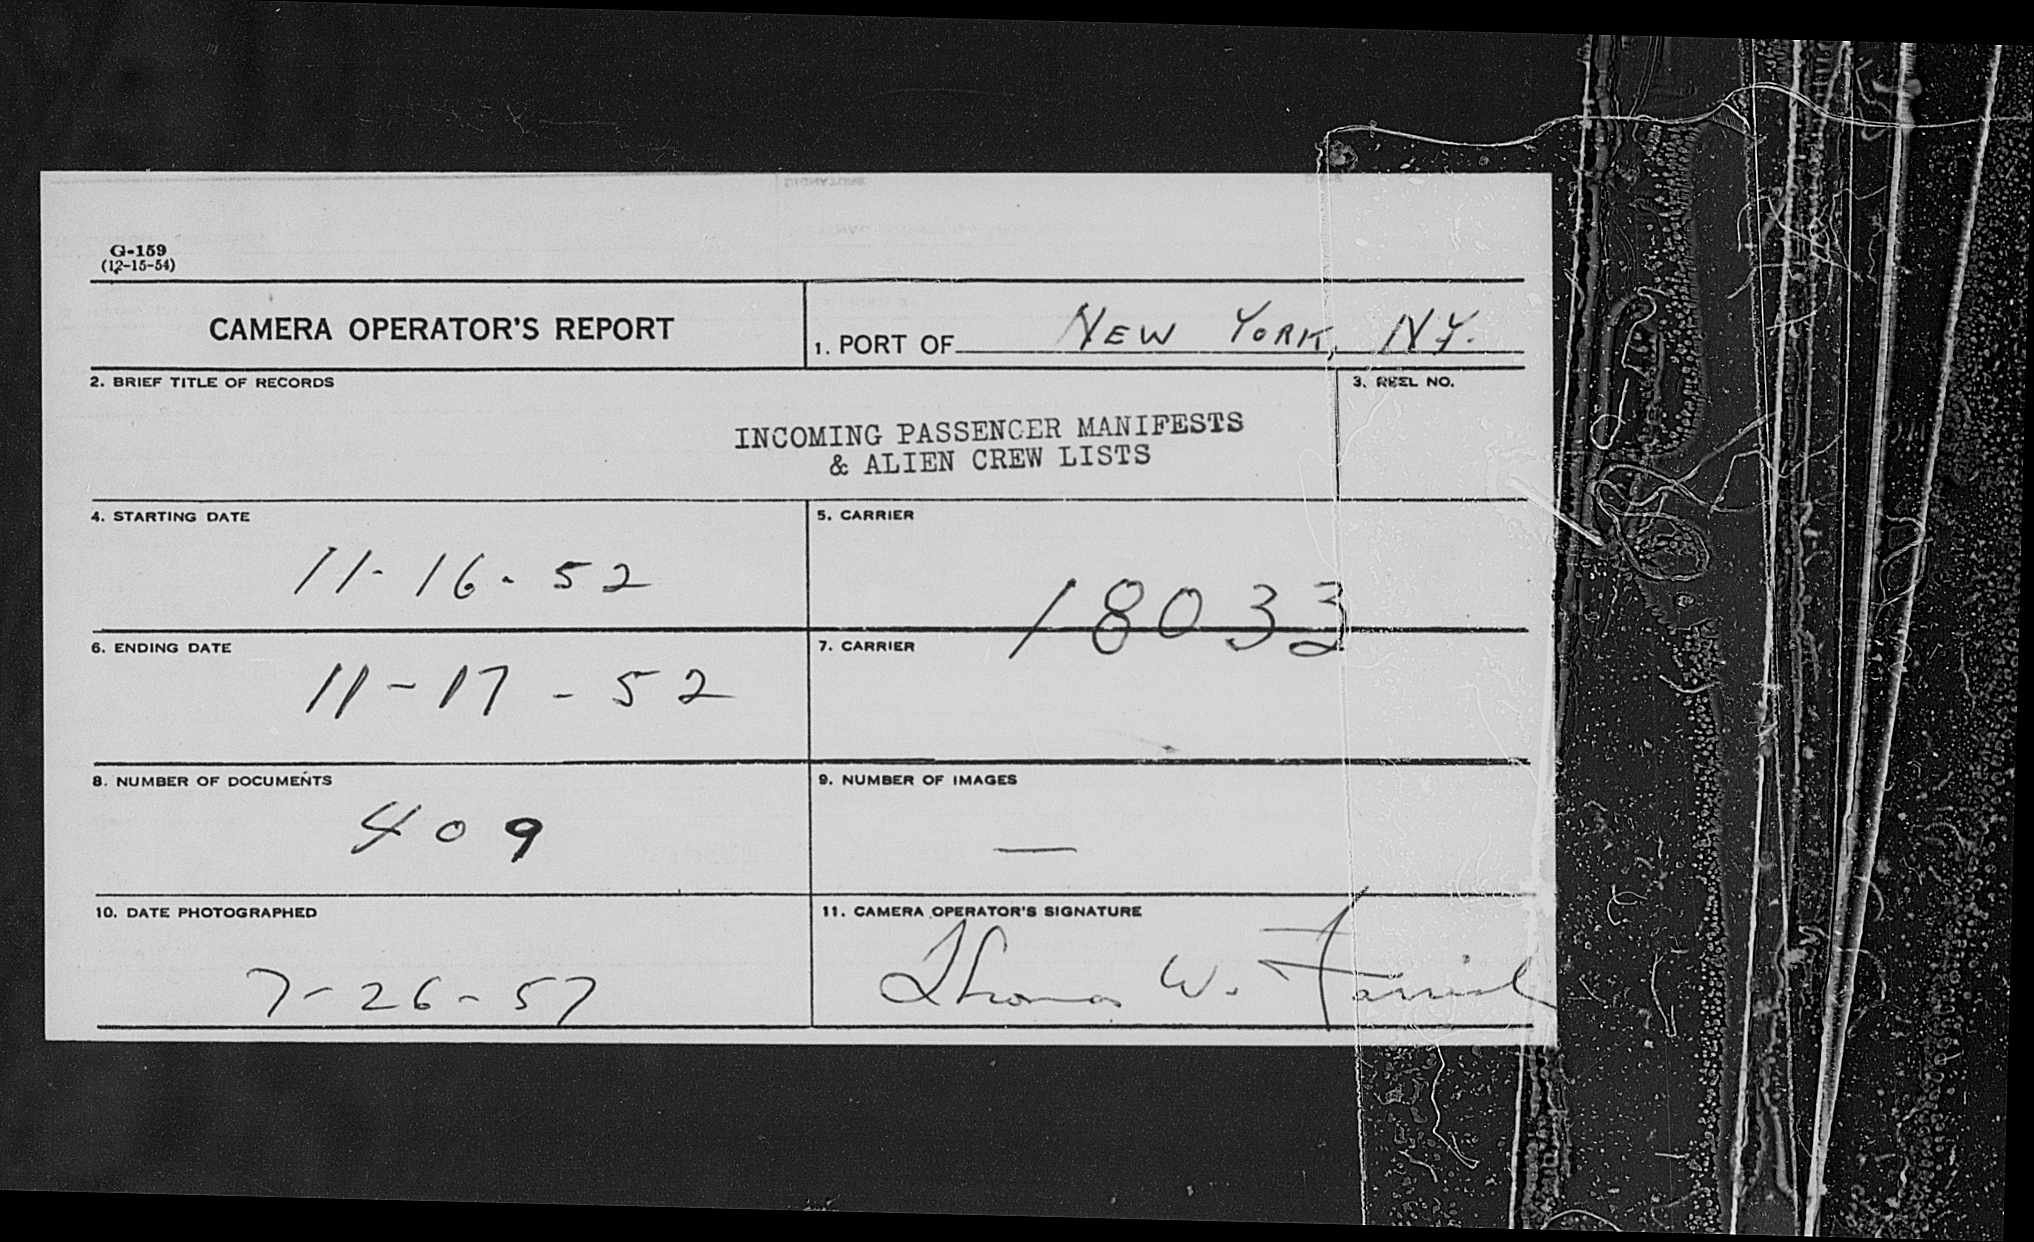 G-159
(12-15-54)
CAMERA OPERATOR'S REPORT
1. PORT OF NEW YORK, N.Y.
2. BRIEF TITLE OF RECORDS
INCOMING PASSENGER MANIFESTS
& ALIEN CREW LISTS
3. REEL NO.
4. STARTING DATE
11-16-52
5. CARRIER
18033
6. ENDING DATE
11-17-52
7. CARRIER
8. NUMBER OF DOCUMENTS
409
9. NUMBER OF IMAGES
—
10. DATE PHOTOGRAPHED
7-26-57
11. CAMERA OPERATOR'S SIGNATURE
Thomas W.